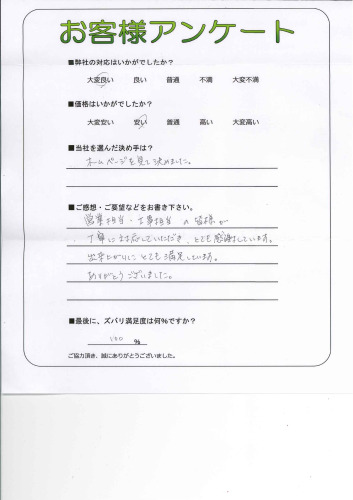 お客様アンケート
■弊社の対応はいかがでしたか?
大変良い 良い 普通 不満 大変不満
■価格はいかがでしたか?
大変安い 安い 普通 高い 大変高い
■当社を選んだ決め手は?
ホームページを見て決めました。
■ご感想・ご要望などをお書き下さい。
営業担当・工事担当の皆様が
丁寧に対応していただき、とても感謝しています。
出来上がりにとても満足しています。
ありがとうございました。
■最後に、ズバリ満足度は何%ですか?
100 %
ご協力頂き、誠にありがとうございました。